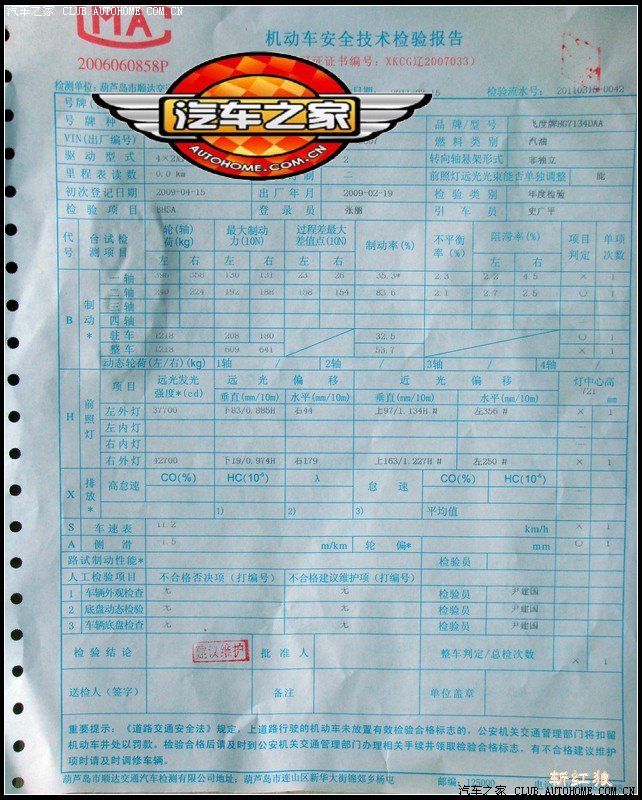 汽车之家 CLUB.AUTOHOME.COM.CN
MA
2006060858P
机动车安全技术检验报告
证证书编号: XKCG辽2007033)
检测单位: 葫芦岛市顺达交 日期: 检验流水号: 20110315 0042
号牌
号牌种 品牌/型号 飞度牌HG7134DAA
VIN(出厂编号) 燃料类别 汽油
驱动型式 4×2 2 转向轴悬架形式 非独立
里程表读数 0.0 km 前照灯远光光束能否单独调整 能
初次登记日期 2009-04-15 出厂年月 2009-02-19 检验类别 年度检验
检验项目 BHSA 登录员 张丽 引车员 史广平
汽车之家
AUTOHOME.COM.CN
代号 台试检测项目 轮(轴)荷(kg) 最大制动力(10N) 过程差最大差值点(10N) 制动率(%) 不平衡率(%) 阻滞率(%) 项目判定 单项次数
左 右 左 右 左 右 左 右
B 制动*
一轴 396 358 130 131 23 26 35.3* 2.3 2.2 4.5 × 1
二轴 240 224 192 188 158 154 83.6 2.1 2.7 2.5 ○ 1
三轴
四轴
驻车 1218 208 180 32.5 ○ 1
整车 1218 609 641 53.7 × 1
动态轮荷(左/右)(kg) 1轴 / 2轴 / 3轴 / 4轴 /
H 前照灯
项目 远光发光强度*(cd) 远光偏移 近光偏移 灯中心高/mm
垂直(mm/10m) 水平(mm/10m) 垂直(mm/10m) 水平(mm/10m) 721
左外灯 37700 下83/0.885H 右44 上97/1.134H # 左356 # × 1
左内灯
右内灯
右外灯 42700 下19/0.974H 右179 上163/1.227H # 左250 # × 1
X 排放* 高怠速 CO(%) HC(10⁻⁶) λ 怠速 CO(%) HC(10⁻⁶)
1) 2) 3) 平均值
S 车速表 11.2 km/h × 1
A 侧滑 1.5 m/km 轮偏* mm ○ 1
路试制动性能* 检验员
人工检验项目 不合格否决项(打编号) 不合格建议维护项(打编号)
1 车辆外观检查 无 无 检验员 尹建国
2 底盘动态检验 无 无 检验员 尹建国
3 车辆底盘检查 无 无 检验员 尹建国
检验结论 建议维护 批准人 整车判定/总检次数 × 1
送检人(签字) 备注 单位盖章
重要提示: 《道路交通安全法》规定, 上道路行驶的机动车未放置有效检验合格标志的, 公安机关交通管理部门将扣留
机动车并处以罚款, 检验合格后请及时到公安机关交通管理部门办理相关手续并领取检验合格标志, 有不合格建议维护
项时请及时调修车辆。
葫芦岛市顺达交通汽车检测有限公司地址: 葫芦岛市连山区新华大街锦郊乡杨屯 邮编: 125000 电
斩红狼
汽车之家 CLUB.AUTOHOME.COM.CN